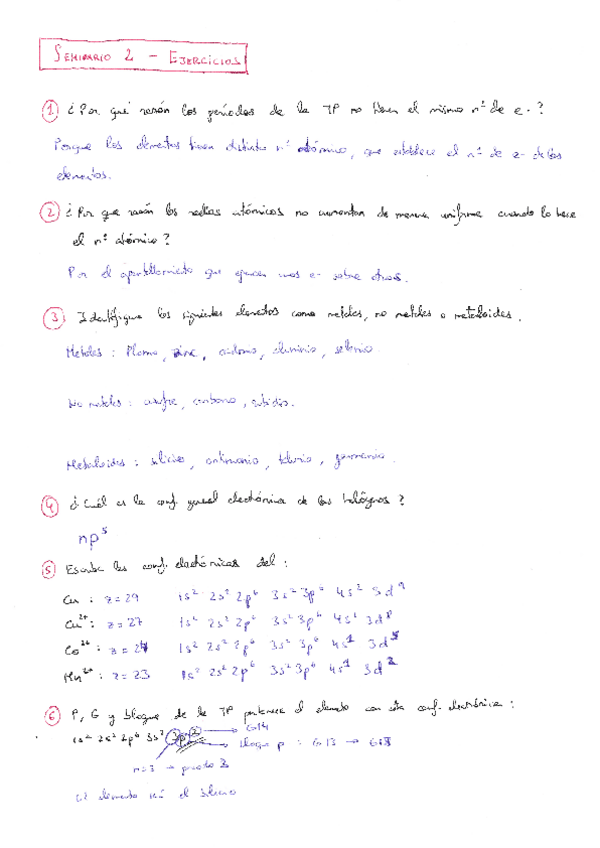 SEMINARIO 2 - EJERCICIOS
1 ¿Por qué razón los periodos de la TP no tienen el mismo nº de e-?
Porque los elementos tienen distinto nº atómico, que establece el nº de e- de los
elementos.
2 ¿Por que razón los radios atómicos no aumentan de manera uniforme cuando lo hace
el nº atómico?
Por el apantallamiento que ejercen unos e- sobre otros.
3 Identifique los siguientes elementos como metales, no metales o metaloides.
Metales: Plomo, zinc, cadmio, aluminio, selenio
No metales: azufre, carbono,
Metaloides: silicio, antimonio, telurio, germanio.
4 ¿Cuál es la conf. gneal electrónica de los halógenos?
np⁵
5 Escribe las conf. electrónicas del:
Cu: z=29 1s² 2s² 2p⁶ 3s² 3p⁶ 4s² 3d⁹
Cu²⁺: z=27 1s² 2s² 2p⁶ 3s² 3p⁶ 4s¹ 3d⁸
z=24 1s² 2s² 2p⁶ 3s² 3p⁶ 4s¹ 3d⁵
Mn²⁺: z=23 1s² 2s² 2p⁶ 3s² 3p⁶ 4s¹ 3d²
6 P, G y bloque de la TP pertenece el elemento con esta conf. electrónica:
1s² 2s² 2p⁶ 3s² 3p² → G14
bloque p: G13 → G18
n=3 → periodo 3
El elemento es el Silicio